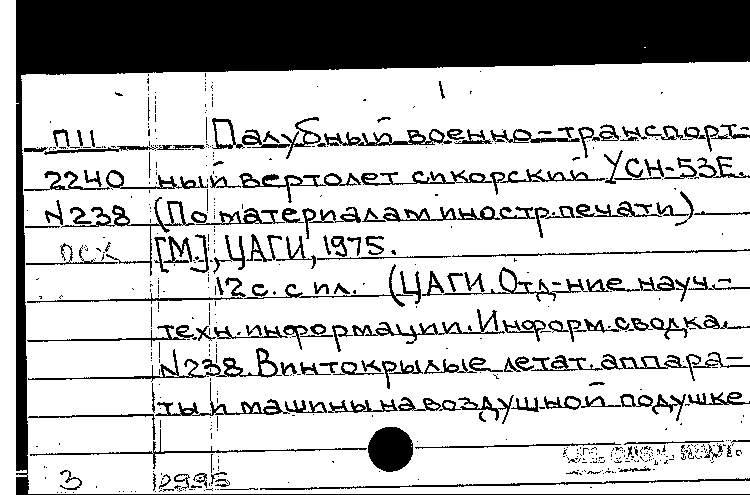 1
П11 Палубный военно-транспорт-
2240 ный вертолет сикорский YCH-53E.
N238 (По материалам иностр.печати).
осх [М.], ЦАГИ, 1975.
12 с. с пл. (ЦАГИ. Отд-ние науч.-
техн. информации. Информ. сводка.
N238. Винтокрылые летат. аппара-
ты и машины на воздушной подушке
См. след. карт.
3 2995